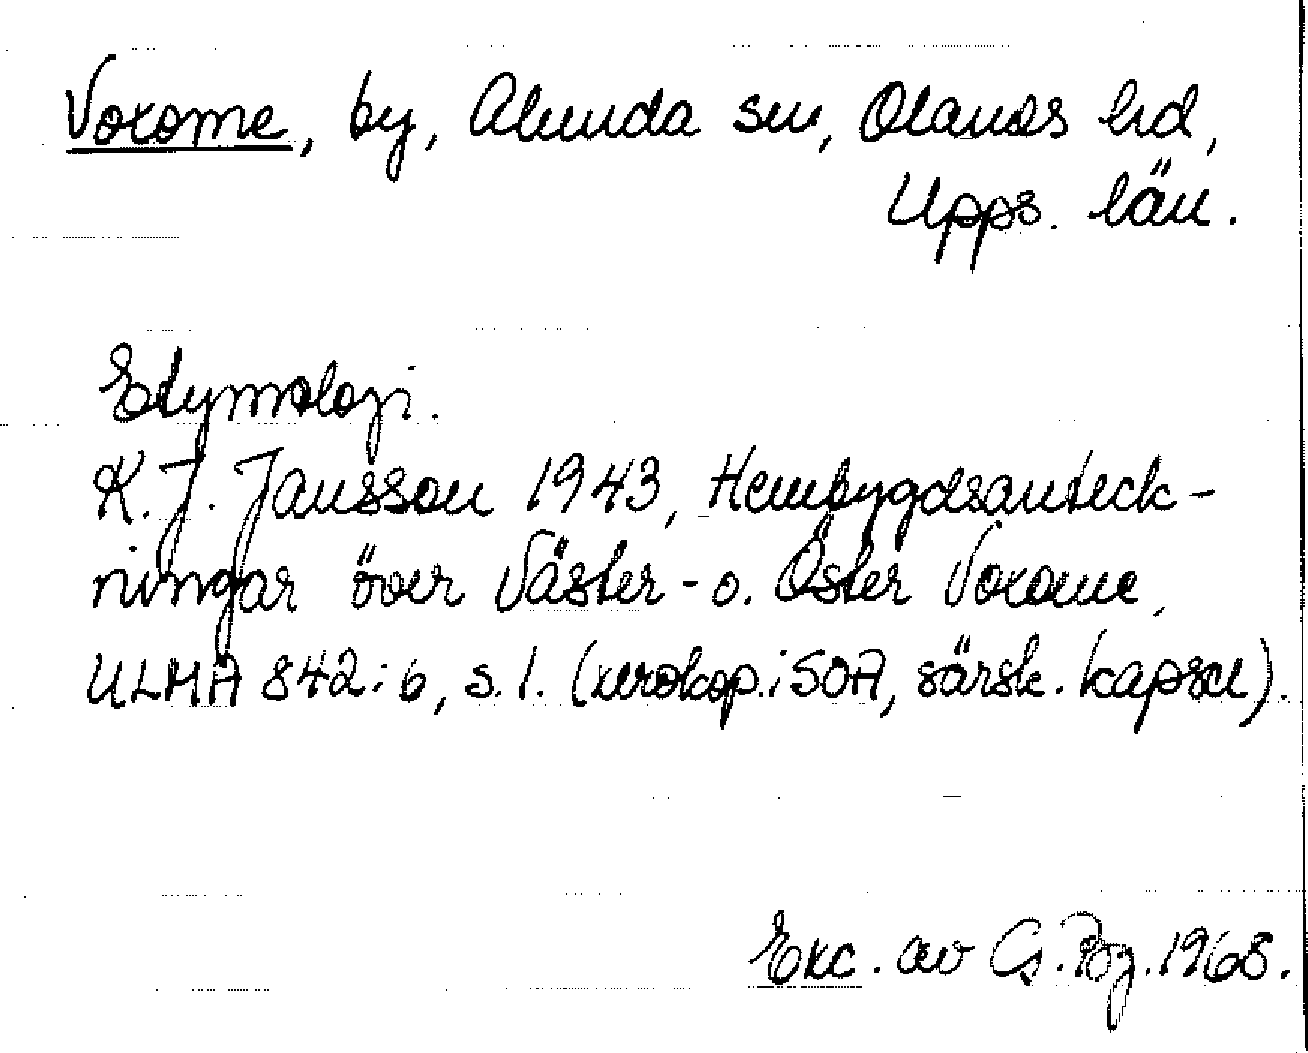 Voxome, by, Alunda sn, Olands hd,
Upps. län.
Etymologi.
K. J. Jansson 1943, Hembygdsanteck-
ningar över Väster- o. Öster Voxome,
ULMA 842:6, s. 1. (xerokop. i SOA, särsk. kapsel).
Exc. av G. 1968.